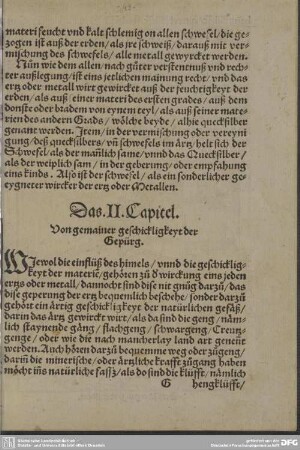 materi feucht vnd kalt schlemig on allen schwefel/ die ge-
zogen ist auß der erden/ als jre schweiß/ darauß mit ver-
mischung des schwefels/ alle metall gewyrcket werden.
Nun wie dem allen/ nach gůter verstentnuß vnd rech-
ter außlegung/ ist eins jetlichen mainung recht/ vnd das
ertz oder metall wirt gewircket auß der feuchtigkeyt der
erden/ als auß einer materi des ersten grads/ auß dem
donst oder bradem von eynem teyl/ als auß seiner mate-
rien des andern Grads/ wölche beyde/ alhie quecksilber
genant werden. Item/ in der vermischung oder vereyni
gung/ deß quecksilbers/ vñ schwefels im ärtz/ helt sich der
Schwefel/ als der mañlich same/ vnnd das Quecksilber/
als der weiplich sam/ in der geberung/ oder empfahung
eins kinds. Also ist der schwefel/ als ein sonderlicher ge-
eygneter wircker der ertz oder Metallen.
Das. II. Capitel.
Von gemainer geschickligkeyt der
Gepürg.
WJewol die einflüß des himels/ vnnd die geschicklig-
keyt der materie/ gehören zů d wirckung eins jeden
ertzs oder metall/ dannocht sind dise nit gnůg darzů/ das
dise geperung der ertz bequemlich beschehe/ sonder darzů
gehöret ein ärrig geschickligkeyt der natürlichen gefäß/
darin das ärtz gewirckt wirt/ als da sind die geng/ näm-
lich staynende gäng/ flachgeng/ schwargeng/ Creutz-
genge/ oder wie die nach mancherlay land art genent
werden. Auch hören darzů bequemme weg oder zügeng/
darm̃ die minerische/ oder ärtzliche krafft zůgang haben
möcht inns natürliche faß/ als da sind die klüfft/ nämlich
G hengklüfft/